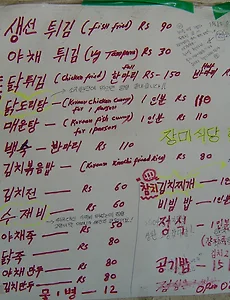 생선 튀김 (fish fried) Rs 90
야채 튀김 (veg Tempura) Rs 30
닭튀김 (Chicken fried) 한마리 full Rs-150 반마리 half Rs
닭도리탕 - (Korean Chicken curry) for 1 person 1인분 Rs 110
매운탕 - (Korean fish curry) for 1 person 1인분 Rs 110
백숙 - 반마리 Rs 110
장미식당
김치볶음밥 - (Korean Kimchi fried rice) Rs 80
김치전 - Rs 60
참치김치찌개
수제비 - Rs 60
비빔밥 - 1인분
야채죽 Rs 50
정식 1인분
닭죽 Rs 80
야채만두 Rs 80
공기밥 15
김치만두 Rs 80
물 1병 - 12
open